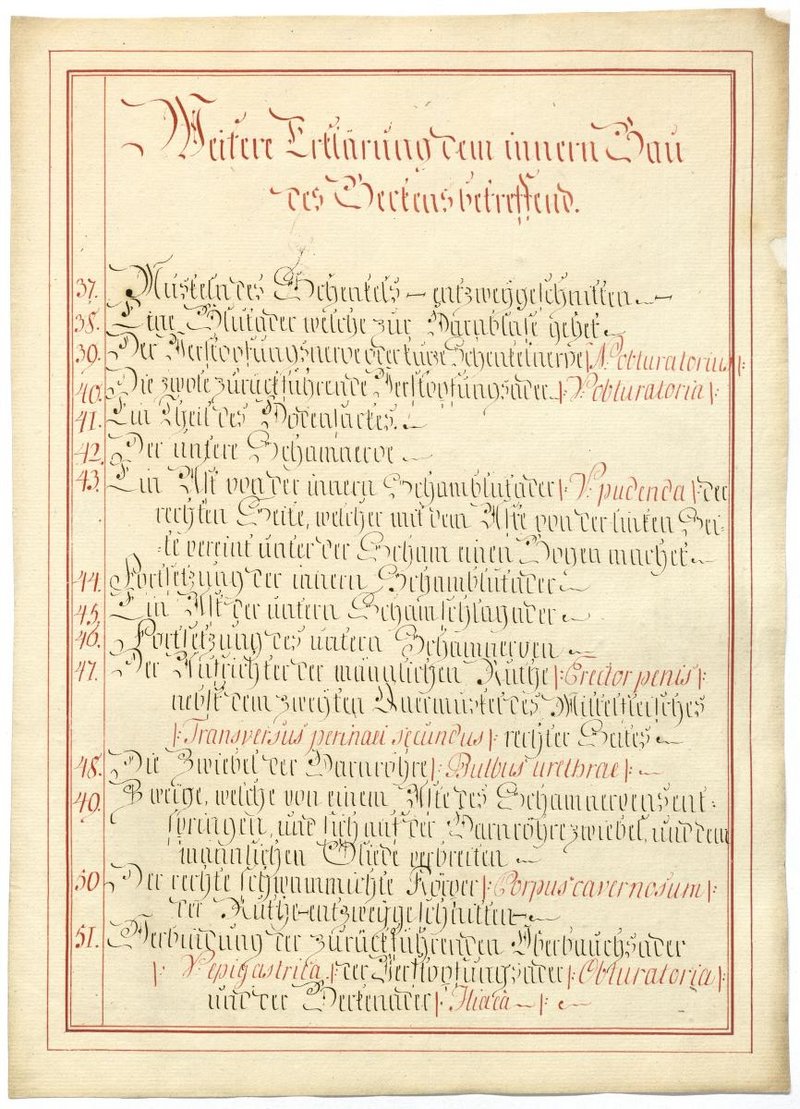 Weitere Erklärung dem innern Bau
des Beckens betreffend.
37. Muskeln des Schenkels – entzweygeschnitten
38. Eine Blutader welche zur Harnblase gehet
39. Der Verstopfungsnerve oder kurze Schenkelnerve |: N. obturatorius :|
40. Die zwote zurückführende Verstopfungsader |: V: obturatoria :|
41. Ein Theil des Hodensackes.
42. Der untere Schamnerve
43. Ein Ast von der innern Schamblutader |: V: pudenda :| der
rechten Seite, welcher mit dem Aste von der linken Sei-
te vereint unter der Scham einen Bogen machet
44. Fortsetzung der innern Schamblutader
45. Ein Ast der untern Schamschlagader
46. Fortsetzung des untern Schamnerven
47. Der Aufrichter der männlichen Ruthe |: Erector penis :|
nebst dem zweyten Quermuskel des Mittelfleisches
|: Transversus perinaei secundus :| rechter Seites
48. Die Zwiebel der Harnröhre |: Bulbus urethrae :|
49. Zweige, welche von einem Aste des Schamnervens ent-
springen, und sich auf der Harnröhrezwiebel, und dem
männlichen Gliede verbreiten
50. Der rechte schwammichte Körper |: Corpus cavernosum :|
der Ruthe – entzweygeschnitten –
51. Verbindung der zurückführenden Oberbauchsader
|: V: epigastrica :| der Verstopfungsader |: Obturatoria :|
und der Beckenader |: Iliaca :|